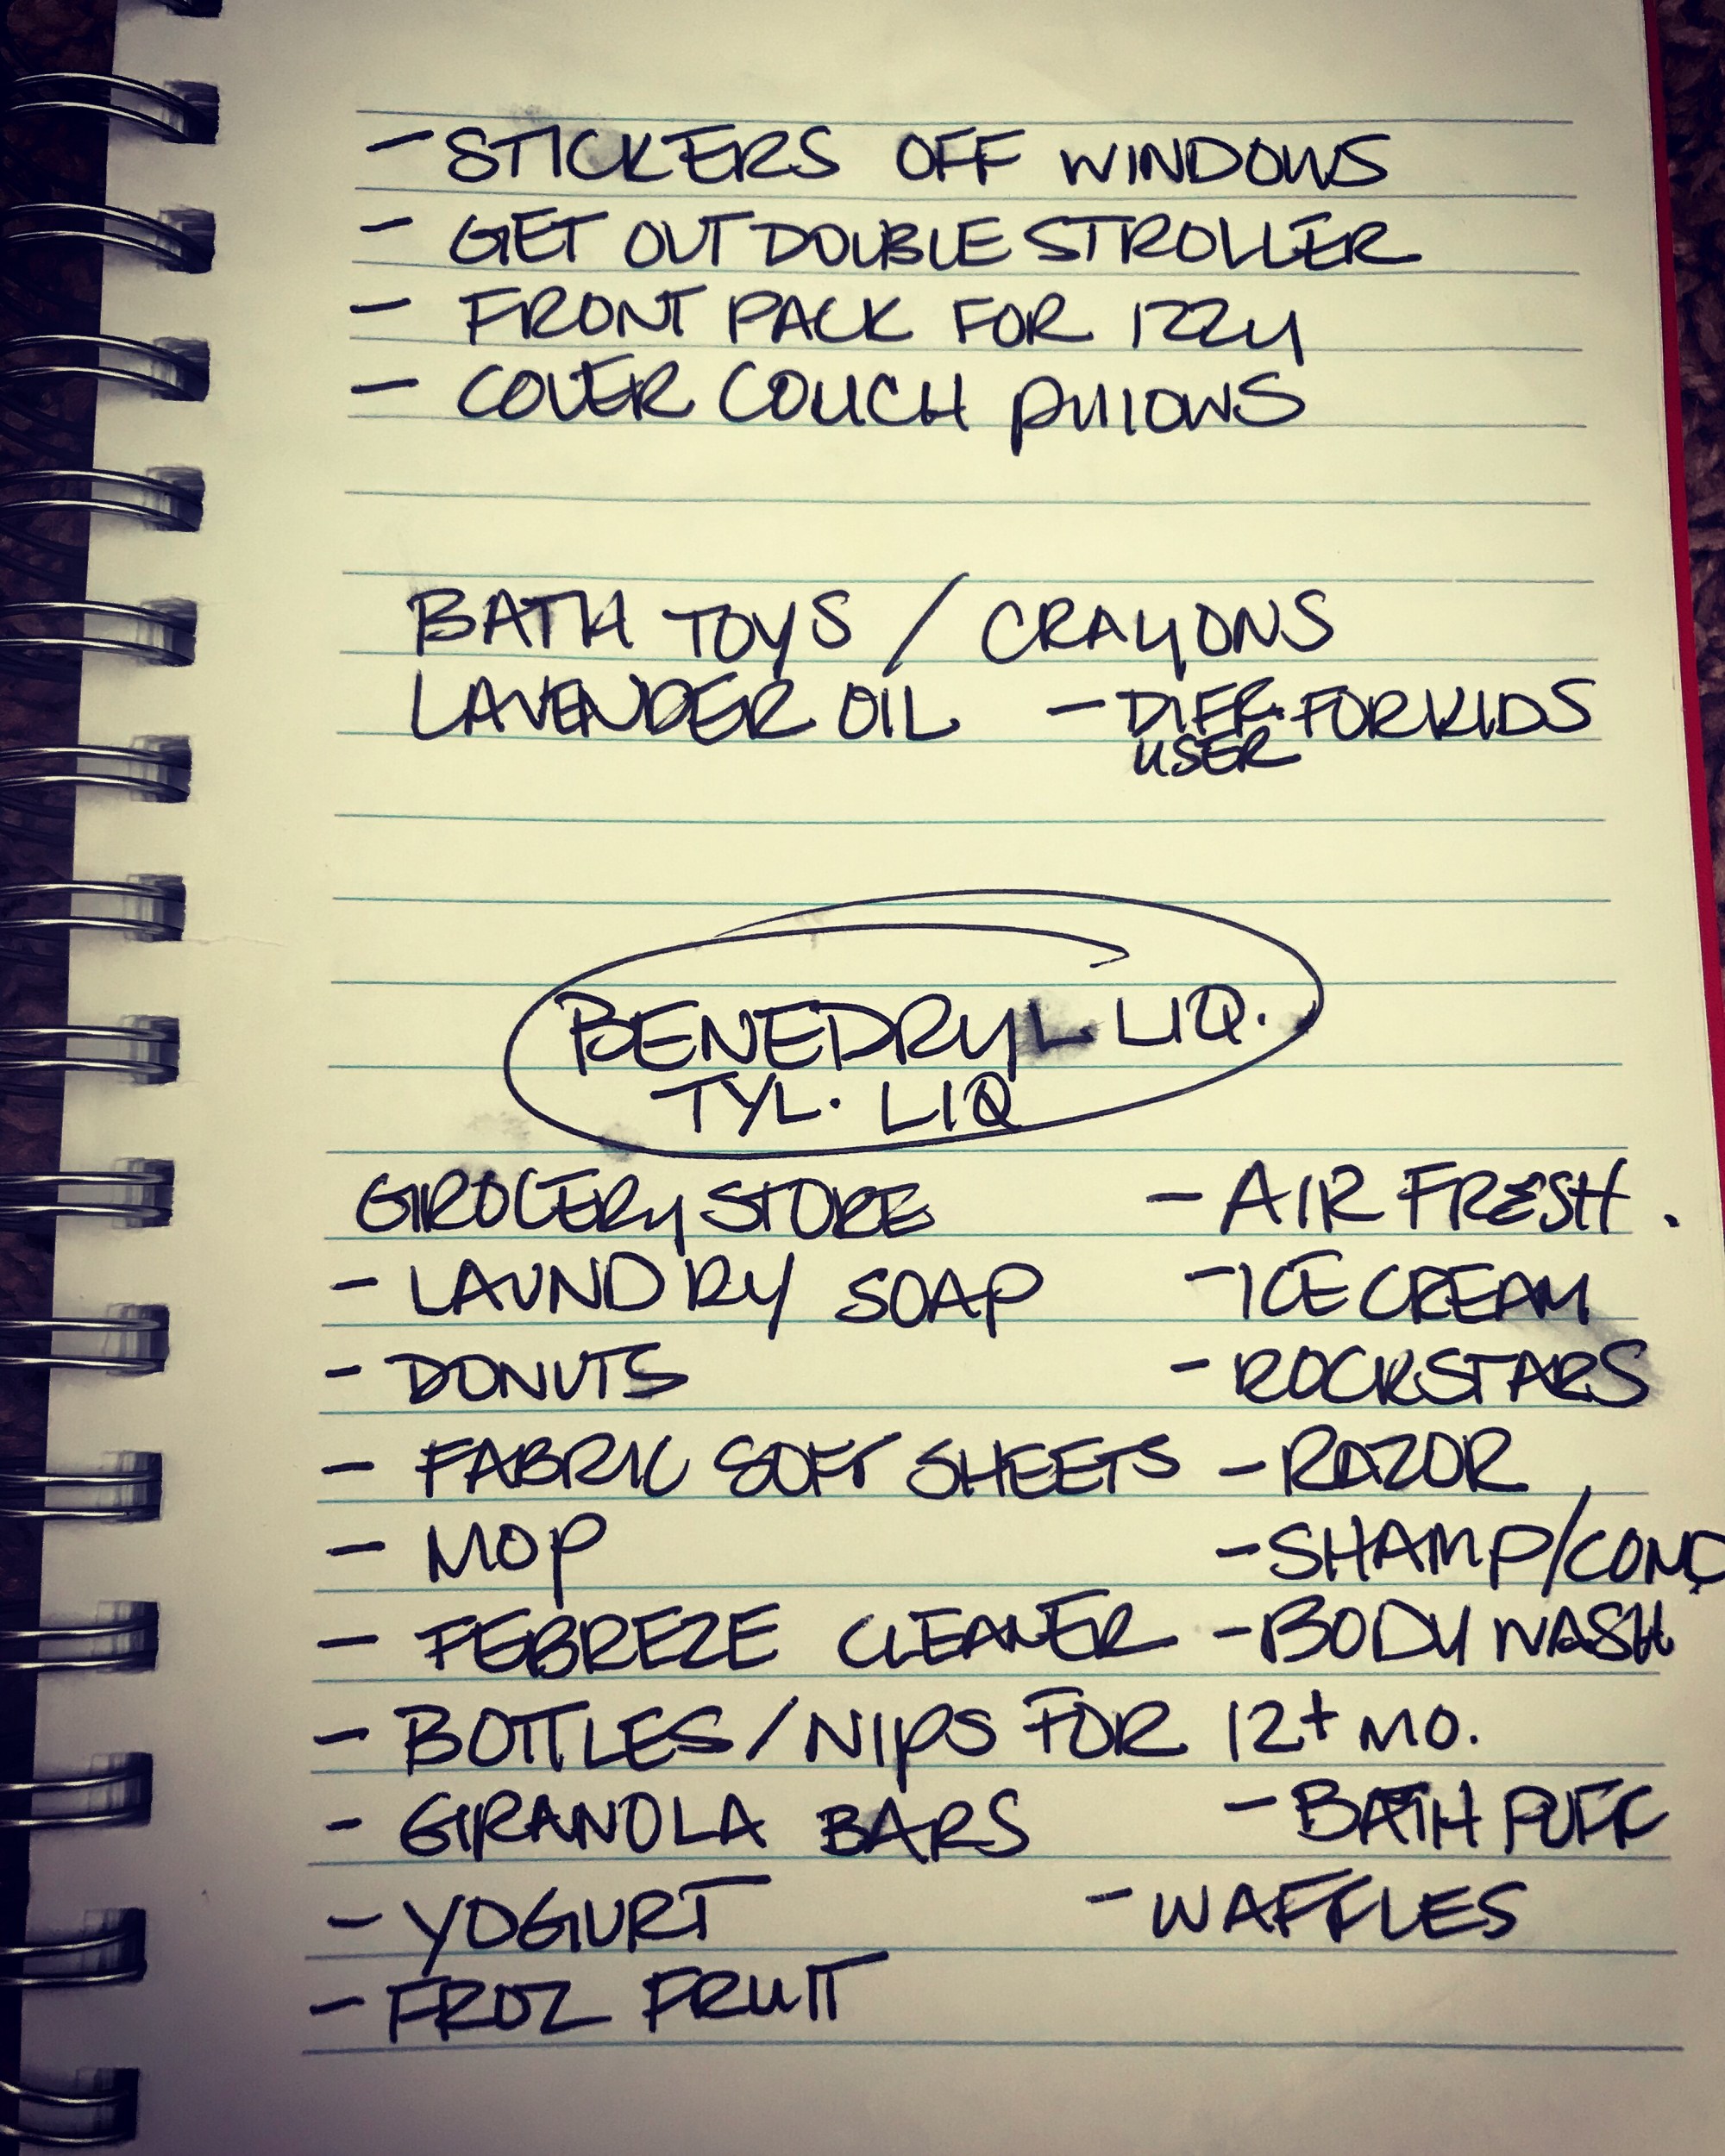 - STICKERS OFF WINDOWS
- GET OUT DOUBLE STROLLER
- FRONT PACK FOR IZZY
- COVER COUCH PILLOWS
BATH TOYS / CRAYONS
LAVENDER OIL - DIFF. FOR KIDS
USER
BENEDRYL LIQ.
TYL. LIQ
GROCERY STORE
- LAUNDRY SOAP
- DONUTS
- FABRIC SOFT SHEETS
- MOP
- FEBREZE CLEANER
- BOTTLES/NIPS FOR 12+ MO.
- GRANOLA BARS
- YOGURT
- FROZ FRUIT
- AIR FRESH.
- ICE CREAM
- ROCKSTARS
- RAZOR
- SHAMP/COND
- BODY WASH
- BATH PUFF
- WAFFLES